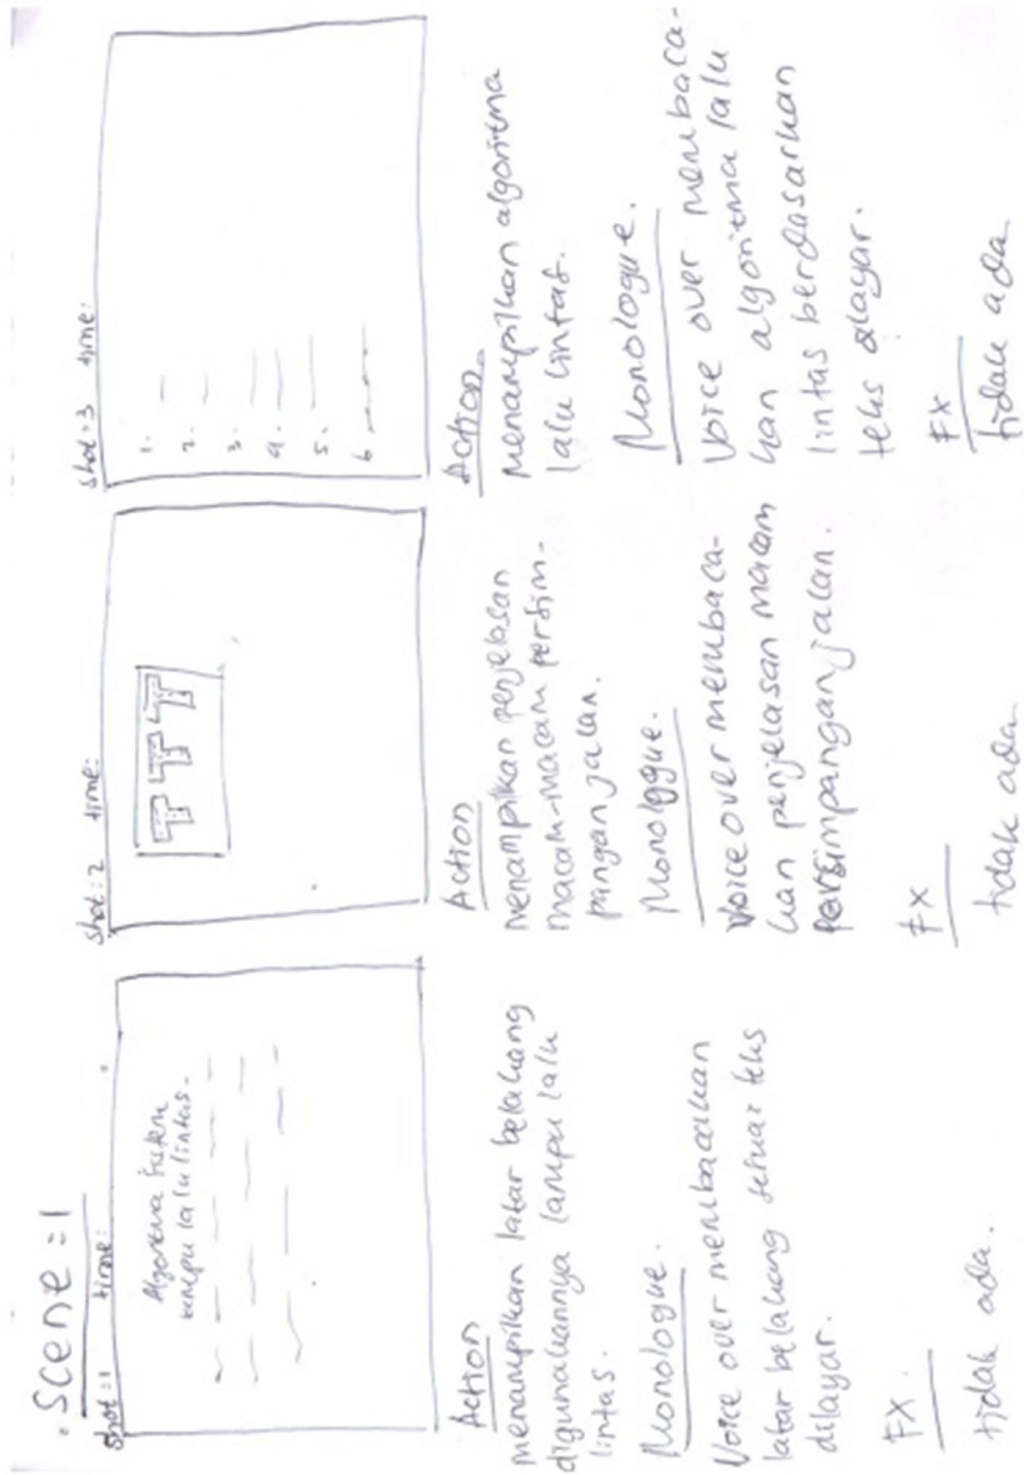 Scene = 1
Shot = 1 time:
Algoritma sistem
lampu lalu lintas.
Action
menampilkan latar belakang
digunakannya lampu lalu
lintas.
Monologue.
Voice over membacakan
latar belakang sesuai teks
dilayar.
FX.
tidak ada.
Shot: 2 time:
Action
menampilkan penjelasan
macam-macam persim-
pangan jalan.
Monologue.
Voice over membaca-
kan penjelasan macam
persimpangan jalan.
FX
tidak ada
Shot = 3 time:
1.
2.
3.
4.
5.
6
Action
Menampilkan algoritma
lalu lintas.
Monologue.
Voice over membaca-
kan algoritma lalu
lintas berdasarkan
teks dilayar.
FX
tidak ada